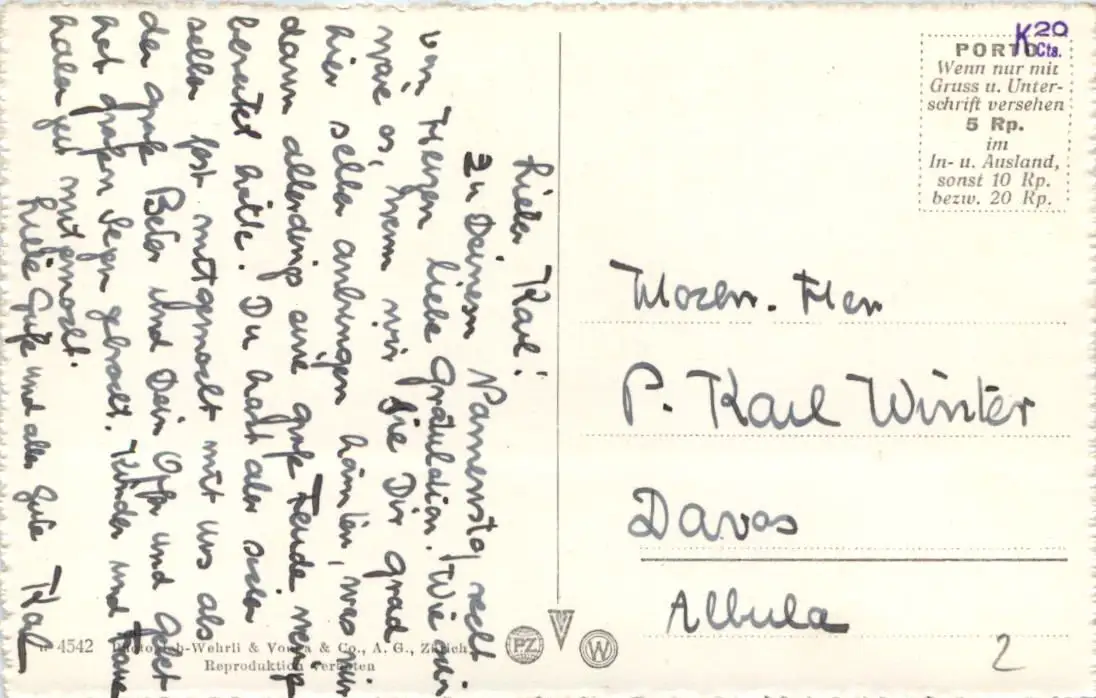 Lieber Karl!
Zu Deinem Namenstag recht
von Herzen liebe Gratulation. Wie
wäre es, wenn wir sie Dir grad
hier selber anbringen könnten, was mir
dann allerdings eine große Freude
bereitet hätte. Du hast aber sicher
selber fest mitgemacht mit uns als
der große Beter und Dein Opfer und Gebet
hat großen Segen gebracht. Kinder und
haben gut mitgemacht.
Liebe Grüße und alles Gute
K 20
Cts.
PORTO
Wenn nur mit
Gruss u. Unter-
schrift versehen
5 Rp.
im
In- u. Ausland,
sonst 10 Rp.
bezw. 20 Rp.
Hochw. Herr
P. Karl Winter
Davos
Albula
2
4542 Photo Wehrli & Vouga & Co., A. G., Zürich
Reproduktion verboten
PZ
W